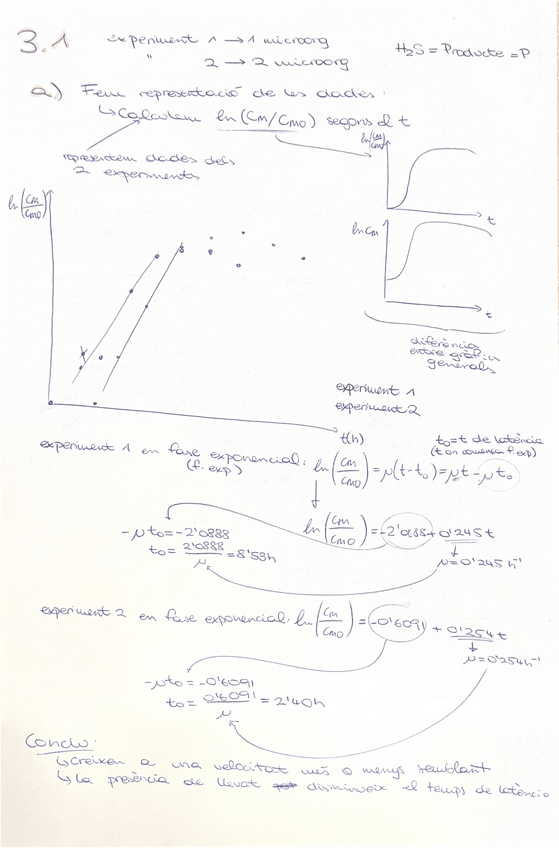 3.1
experiment 1 → 1 microorg
" 2 → 2 microorg
H2S = Producte = P
a) Fem representació de les dades:
↳ Calculem ln(Cm/Cmo) segons el t
representem dades dels
2 experiments
ln(Cm/Cmo)
t
ln Cm
t
diferència
entre gràfics
generals
ln(Cm/Cmo)
t(h)
experiment 1
experiment 2
to = t de latència
(t on comença f. exp)
experiment 1 en fase exponencial: ln(Cm/Cmo) = μ(t-to) = μt - μto
(f. exp)
ln(Cm/Cmo) = -2'0888 + 0'245 t
μ = 0'245 h⁻¹
-μto = -2'0888
to = 2'0888/μ = 8'53h
experiment 2 en fase exponencial: ln(Cm/Cmo) = -0'6091 + 0'254 t
μ = 0'254 h⁻¹
-μto = -0'6091
to = 0'6091/μ = 2'40h
Conclu:
↳ Creixen a una velocitat més o menys semblant
↳ La presència de llevat disminueix el temps de latència